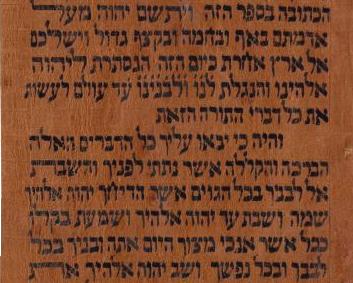 הכתובה בספר הזה ויתשם יהוה מעל
אדמתם באף ובחמה ובקצף גדול וישלכם
אל ארץ אחרת כיום הזה הנסתרת ליהוה
אלהינו והנגלת לנו ולבנינו עד עולם לעשות
את כל דברי התורה הזאת
והיה כי יבאו עליך כל הדברים האלה
הברכה והקללה אשר נתתי לפניך והשבת
אל לבבך בכל הגוים אשר הדיחך יהוה אלהיך
שמה ושבת עד יהוה אלהיך ושמעת בקלו
ככל אשר אנכי מצוך היום אתה ובניך בכל
לבבך ובכל נפשך ושב יהוה אלהיך את